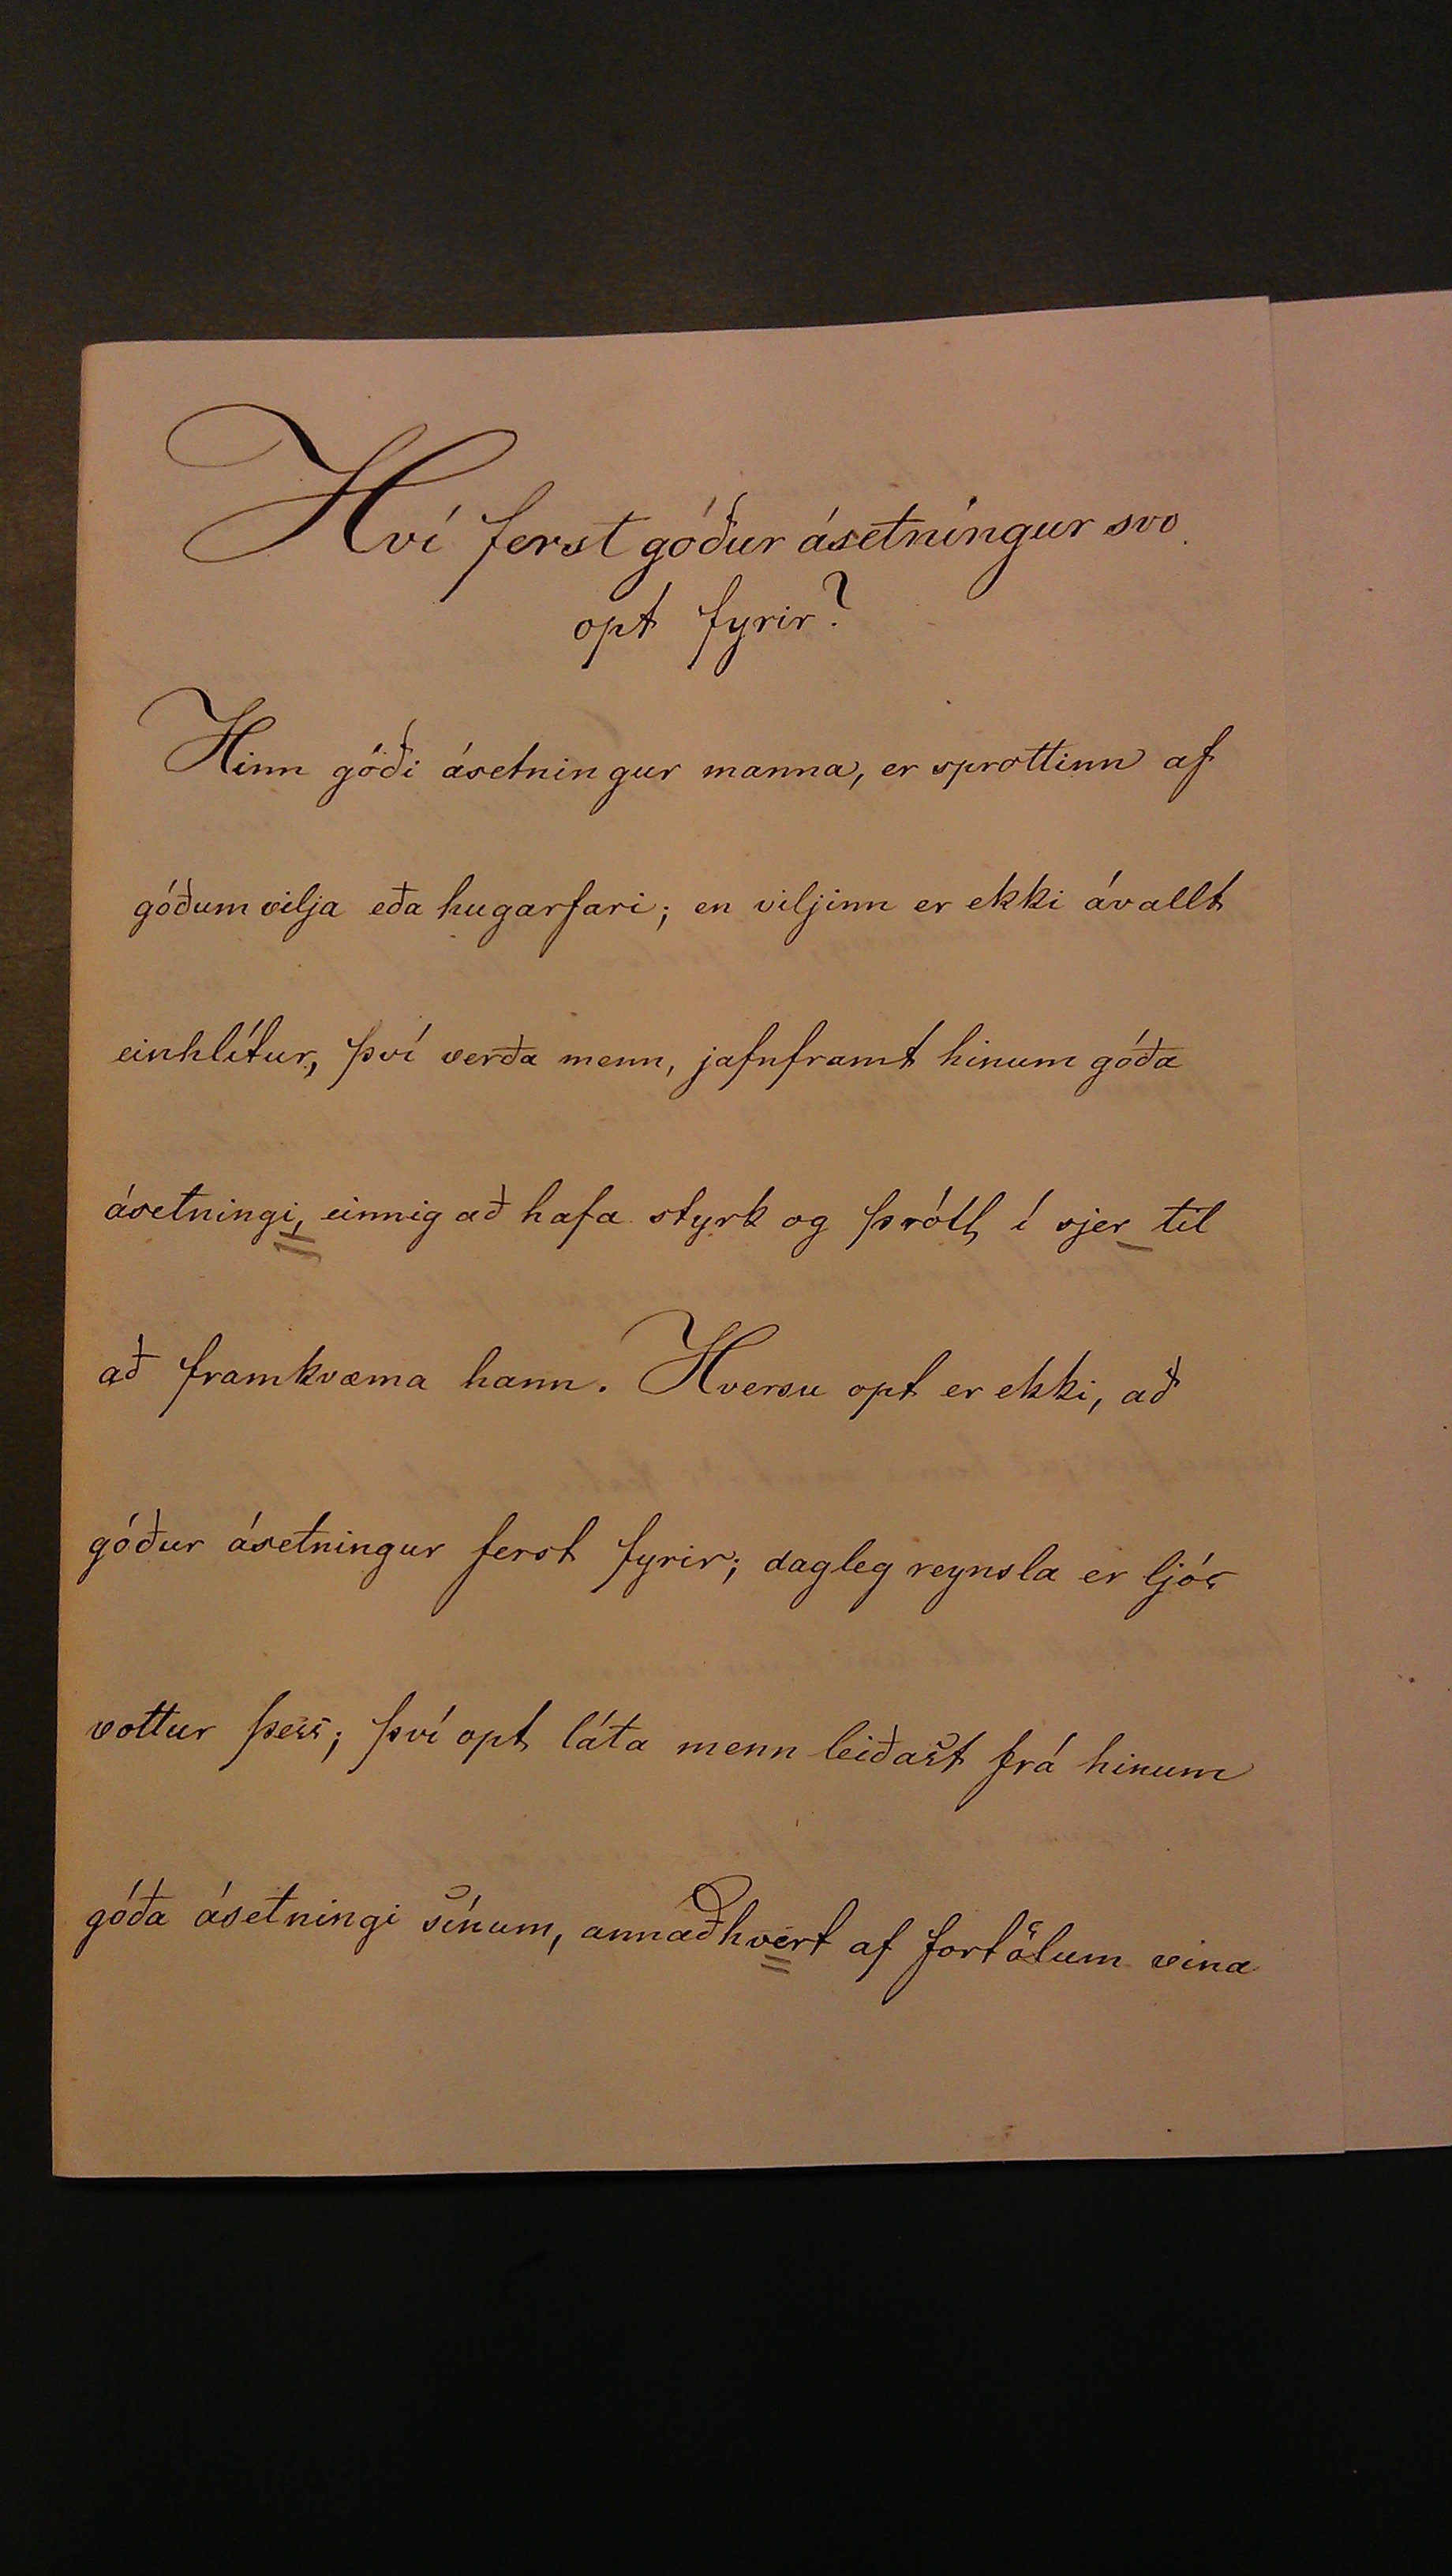 Hví ferst góður ásetníngur svo
opt fyrir?
Hinn góði ásetningur manna, er sprottinn af
góðum vilja eða hugarfari; en viljinn er ekki ávallt
einhlítur, því verða menn, jafnframt hinum góða
ásetningi, einnig að hafa styrk og þrótt í sjer til
að framkvæma hann. Hversu opt er ekki, að
góður ásetningur ferst fyrir; dagleg reynsla er ljós
vottur þess; því opt láta menn leiðast frá hinum
góða ásetningi sínum, annaðhvert af fortölum vina